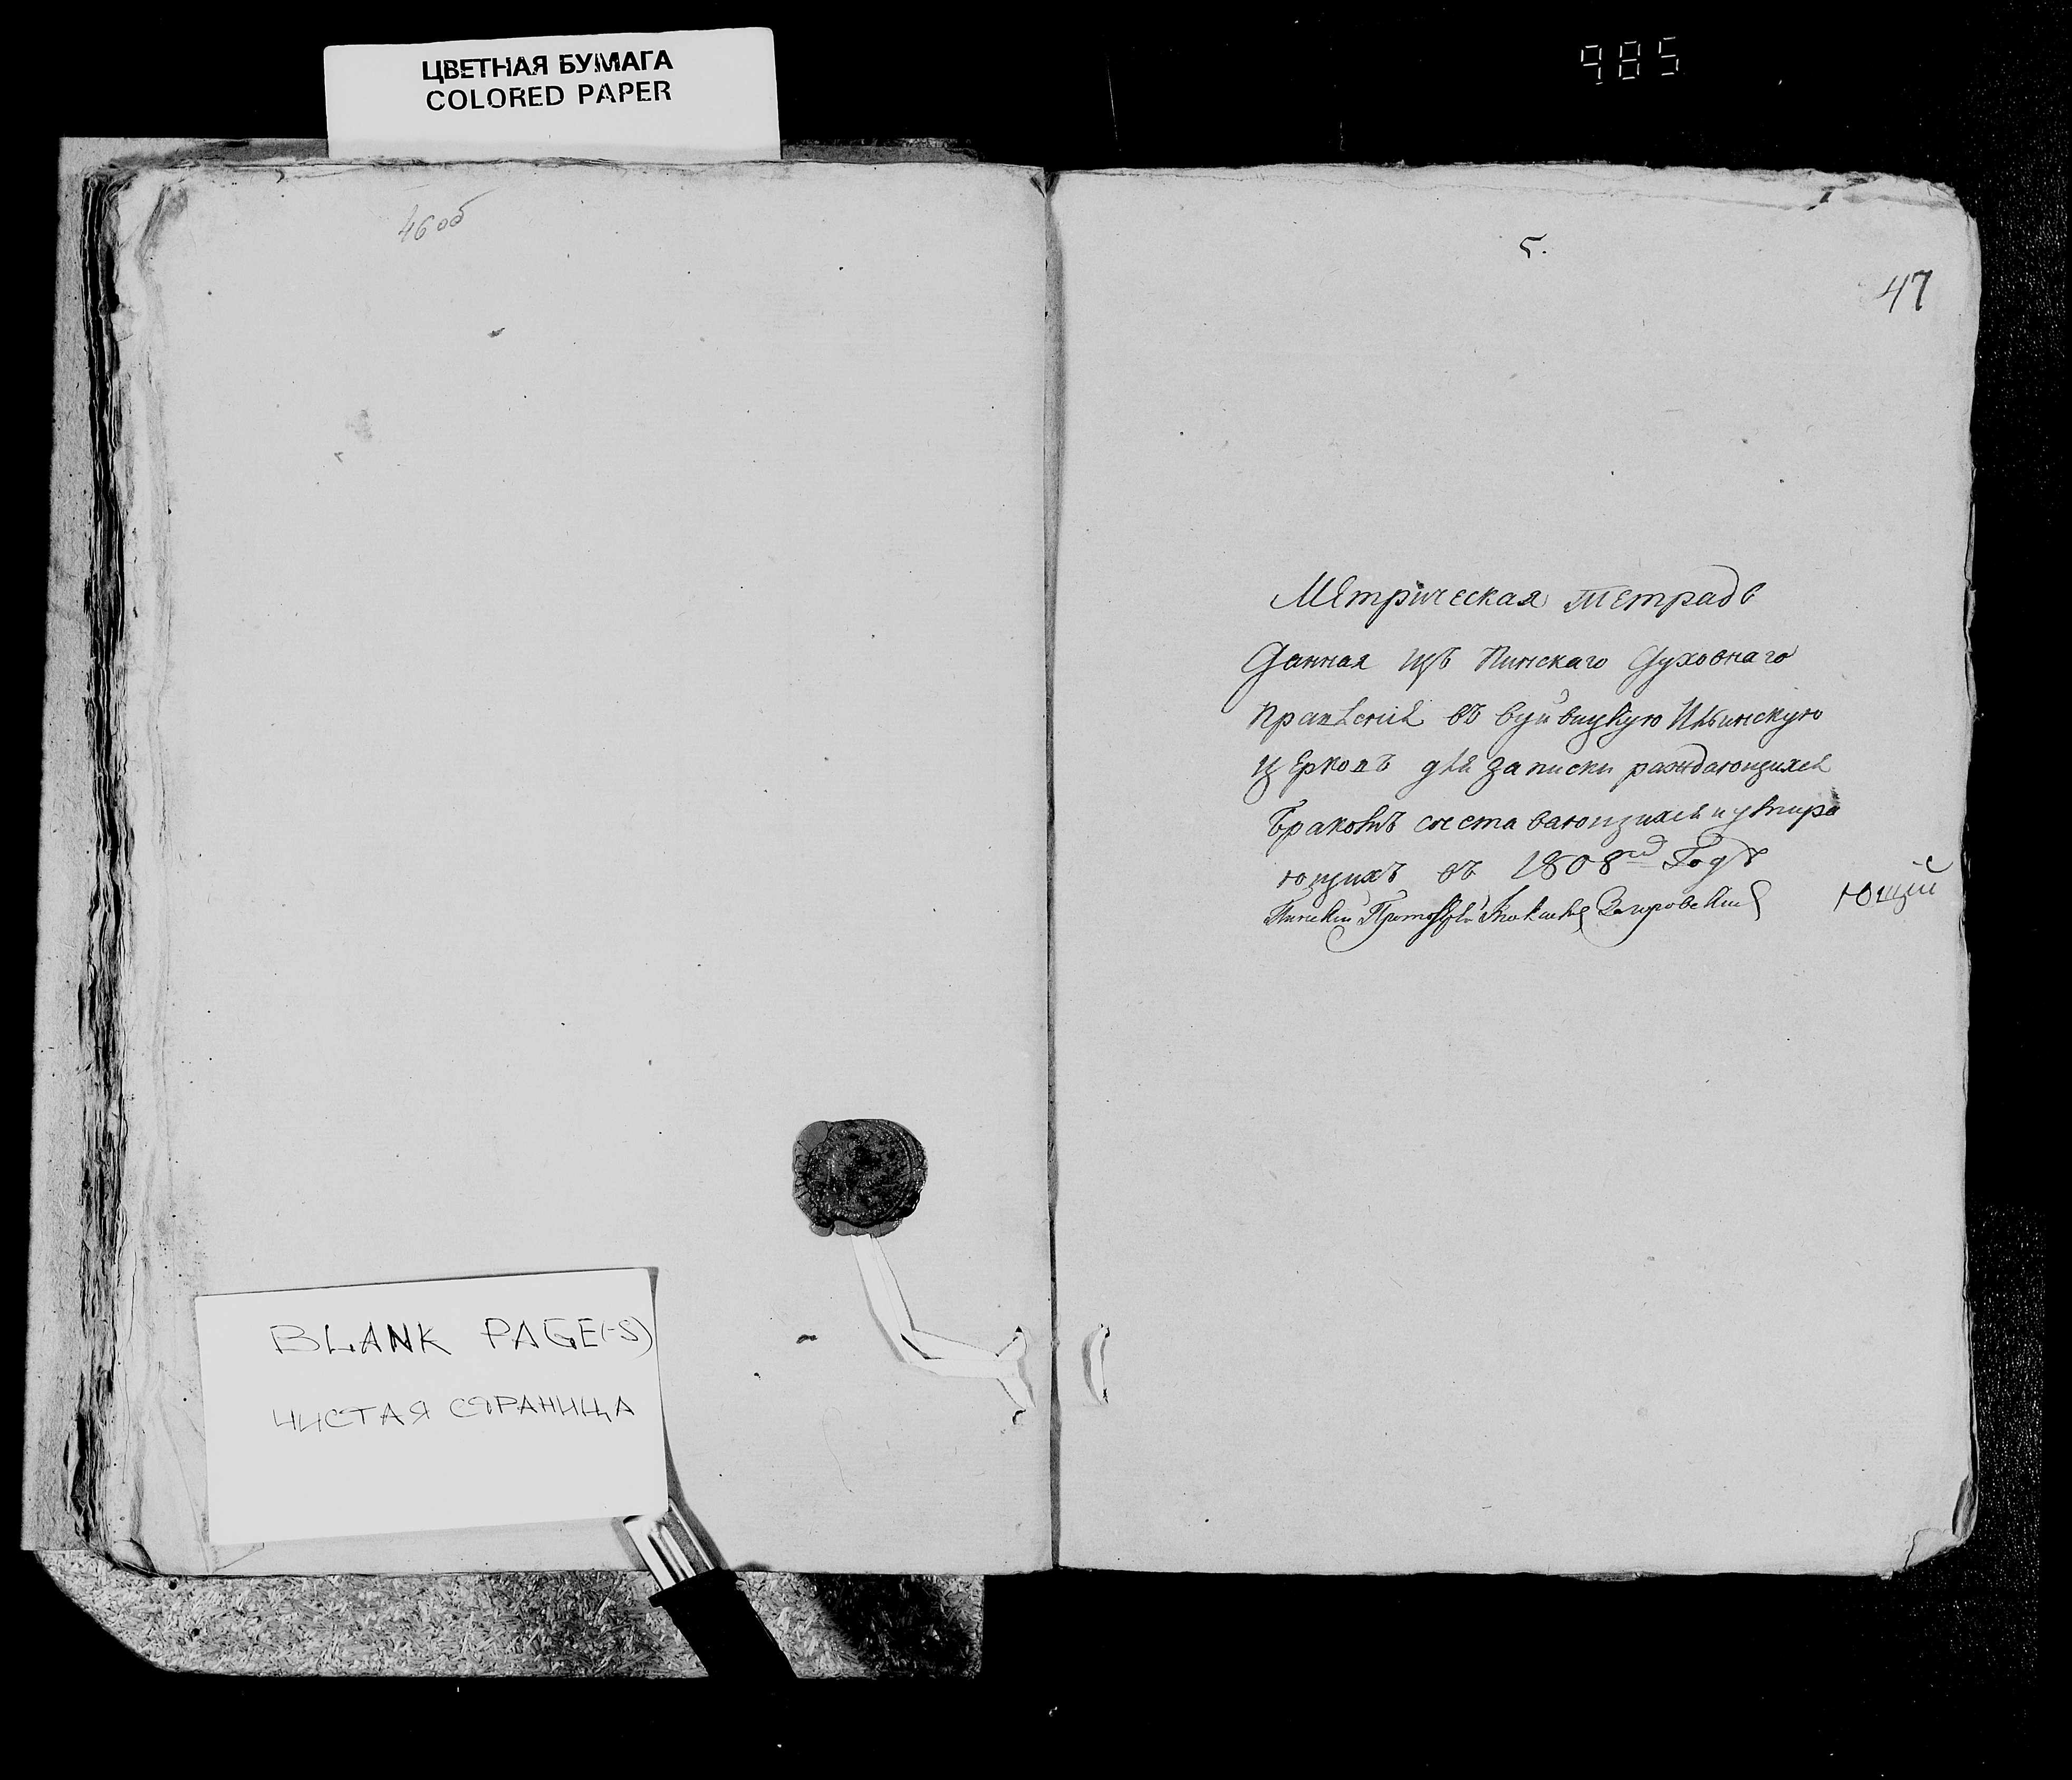 ЦВЕТНАЯ БУМАГА
COLORED PAPER
985
46об
5.
47
Метрическая тетрадь
данная изъ Пинскаго духовнаго
правленія въ вуйвицкую Ильинскую
церковъ для записки раждающихся
браковъ сочетавающихся и умира
ющихъ въ 1808м Годѣ
Пинскій
ющій
BLANK PAGE(-S)
ЧИСТАЯ СТРАНИЦА